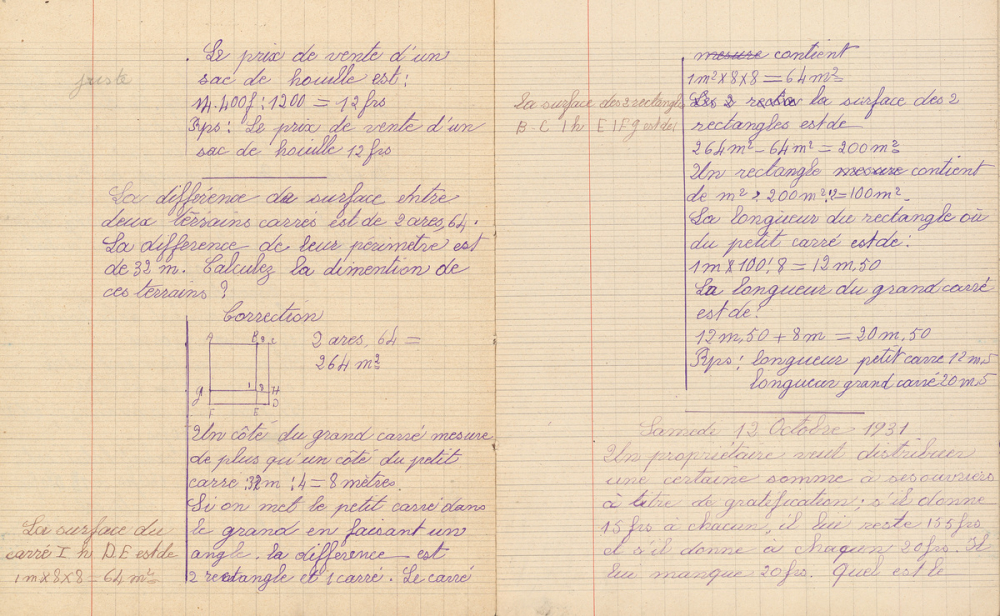 juste
Le prix de vente d'un
sac de houille est :
14.400f : 1200 = 12 frs
Rps : Le prix de vente d'un
sac de houille 12 frs
La différence de surface entre
deux terrains carrés est de 2 ares, 64.
La différence de leur périmètre est
de 32 m. Calculez la dimention de
ces terrains ?
Correction
2 ares, 64 =
264 m²
A B C
G I H
F E D
Un côté du grand carré mesure
de plus qu'un côté du petit
carre : 32m : 4 = 8 mètres.
Si on met le petit carré dans
le grand en faisant un
angle. la différence est
2 rectangle et 1 carré. Le carré
La surface du
carré I h D.E est de
1m x 8 x 8 = 64 m²
mesure contient
1m² x 8 x 8 = 64 m²
Les 2 la surface des 2
rectangles est de
264 m² - 64 m² = 200 m²
Un rectangle mesure contient
de m² : 200 m² : 2 = 100 m².
La longueur du rectangle où
du petit carré est de :
1m x 100 : 8 = 12 m, 50
La longueur du grand carré
est de :
12 m, 50 + 8 m = 20 m, 50
Rps : longueur petit carre 12 m, 5
longueur grand carré 20 m, 5
La surface des 2 rectangle
B - C I h E I F g est de
Samedi 12 Octobre 1931
Un propriétaire veut distribuer
une certaine somme à ses ouvriers
à titre de gratification ; s'il donne
15 frs à chacun, il lui reste 135 frs
et s'il donne à chaqun 20 frs. Il
lui manque 20 frs. Quel est le